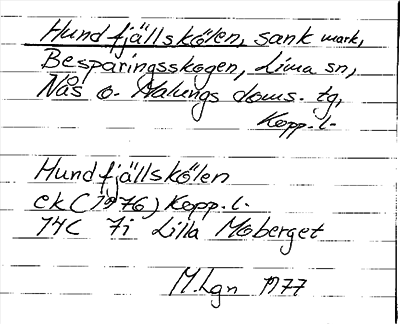 Hundfjällskölen, sank mark,
Besparingsskogen, Lima sn,
Nås o. Malungs doms. tg,
Kopp. l.
Hundfjällskölen
ek (1976) Kopp. l.
14C 7i Lilla Moberget
M. Lgn 1977